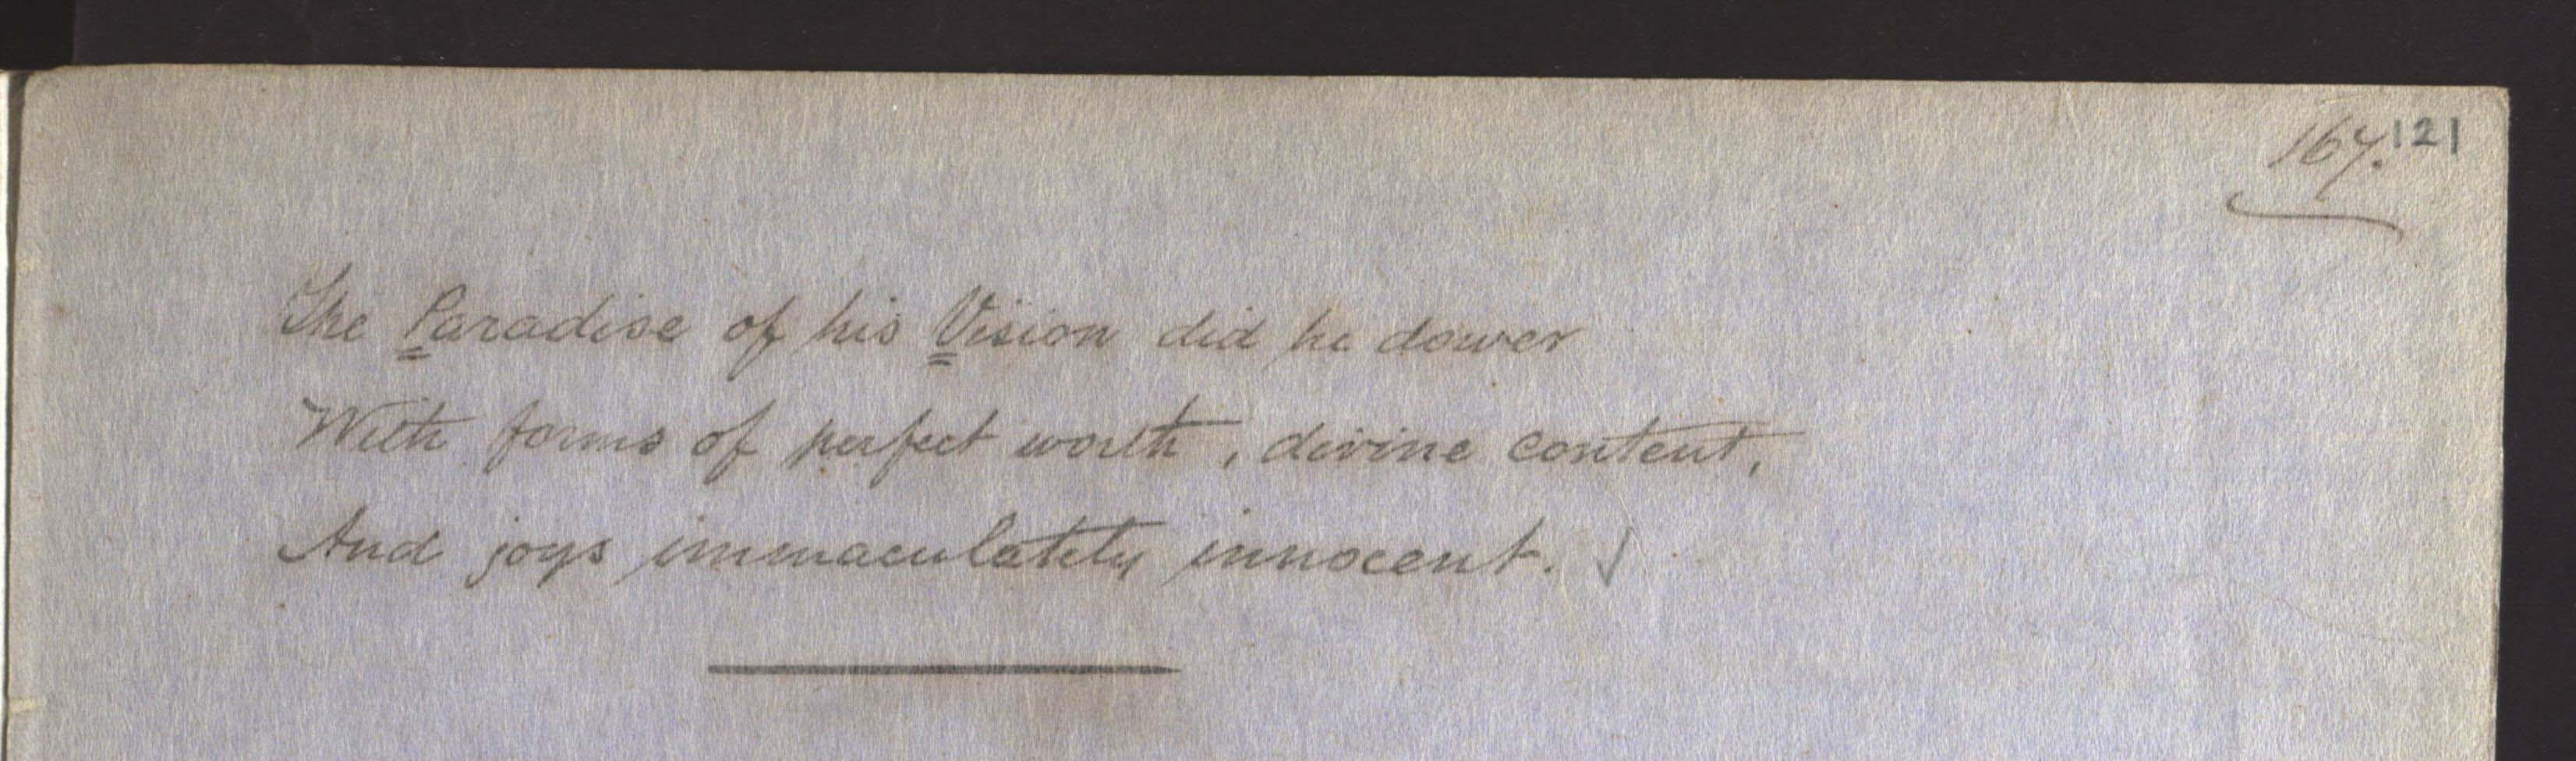 167. 121
The Paradise of his Vision did he dower
With forms of perfect worth, divine content,
And joys immaculately innocent.